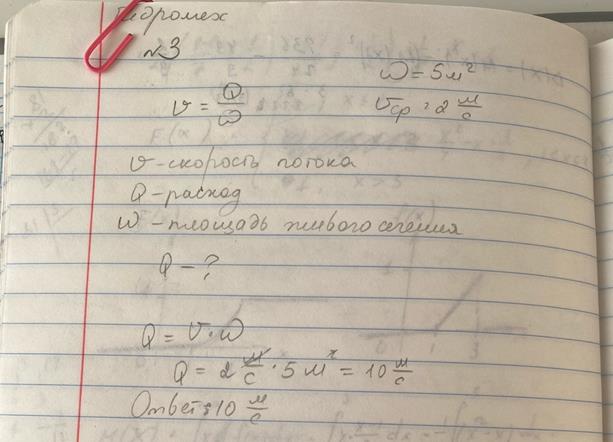 Гидромех
№3
ω = 5 м²
v = Q/ω
vср = 2 м/с
v - скорость потока
Q - расход
ω - площадь живого сечения
Q - ?
Q = v · ω
Q = 2 м/с · 5 м² = 10 м/с
Ответ: 10 м/с